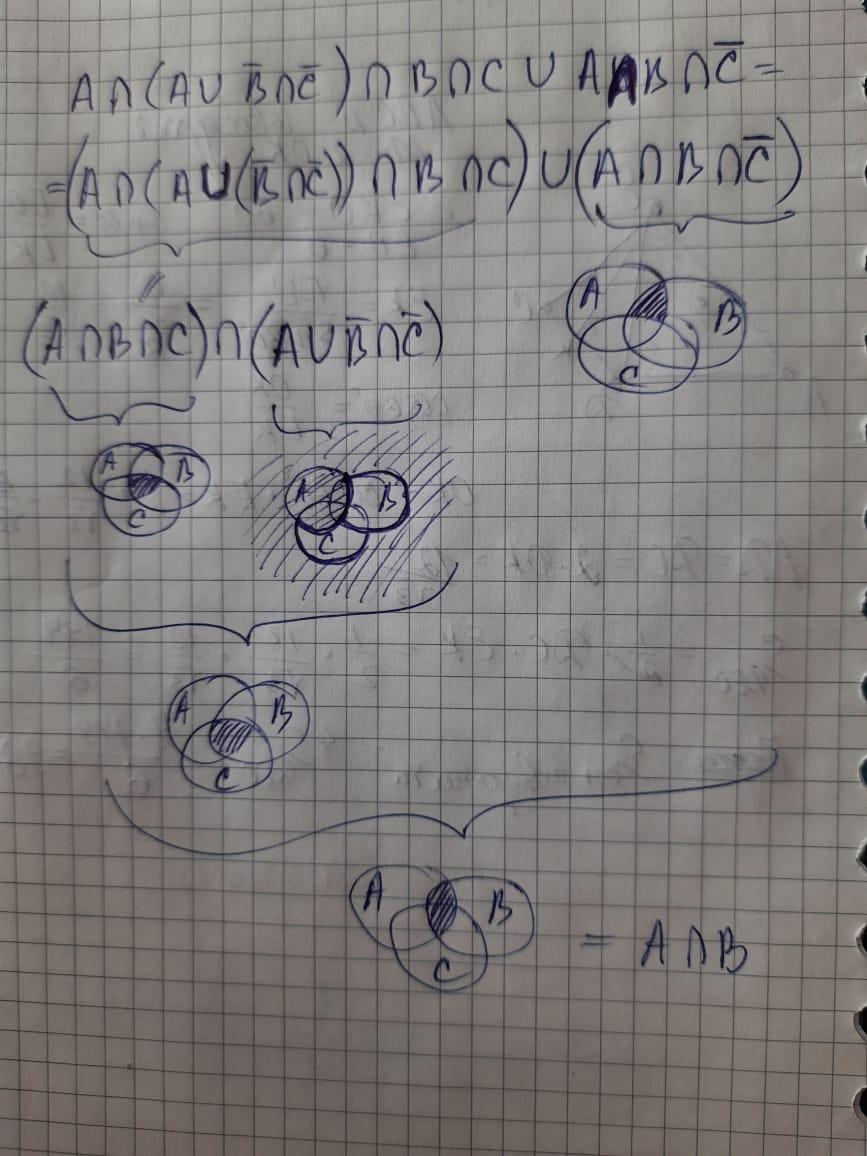 A∩(A∪B̅∩C̅)∩B∩C∪A∩B∩C̅=
=(A∩(A∪(B̅∩C̅))∩B∩C)∪(A∩B∩C̅)
(A∩B∩C)∩(A∪B̅∩C̅)
A B C
A B C
A B C
A B C
A B C = A∩B